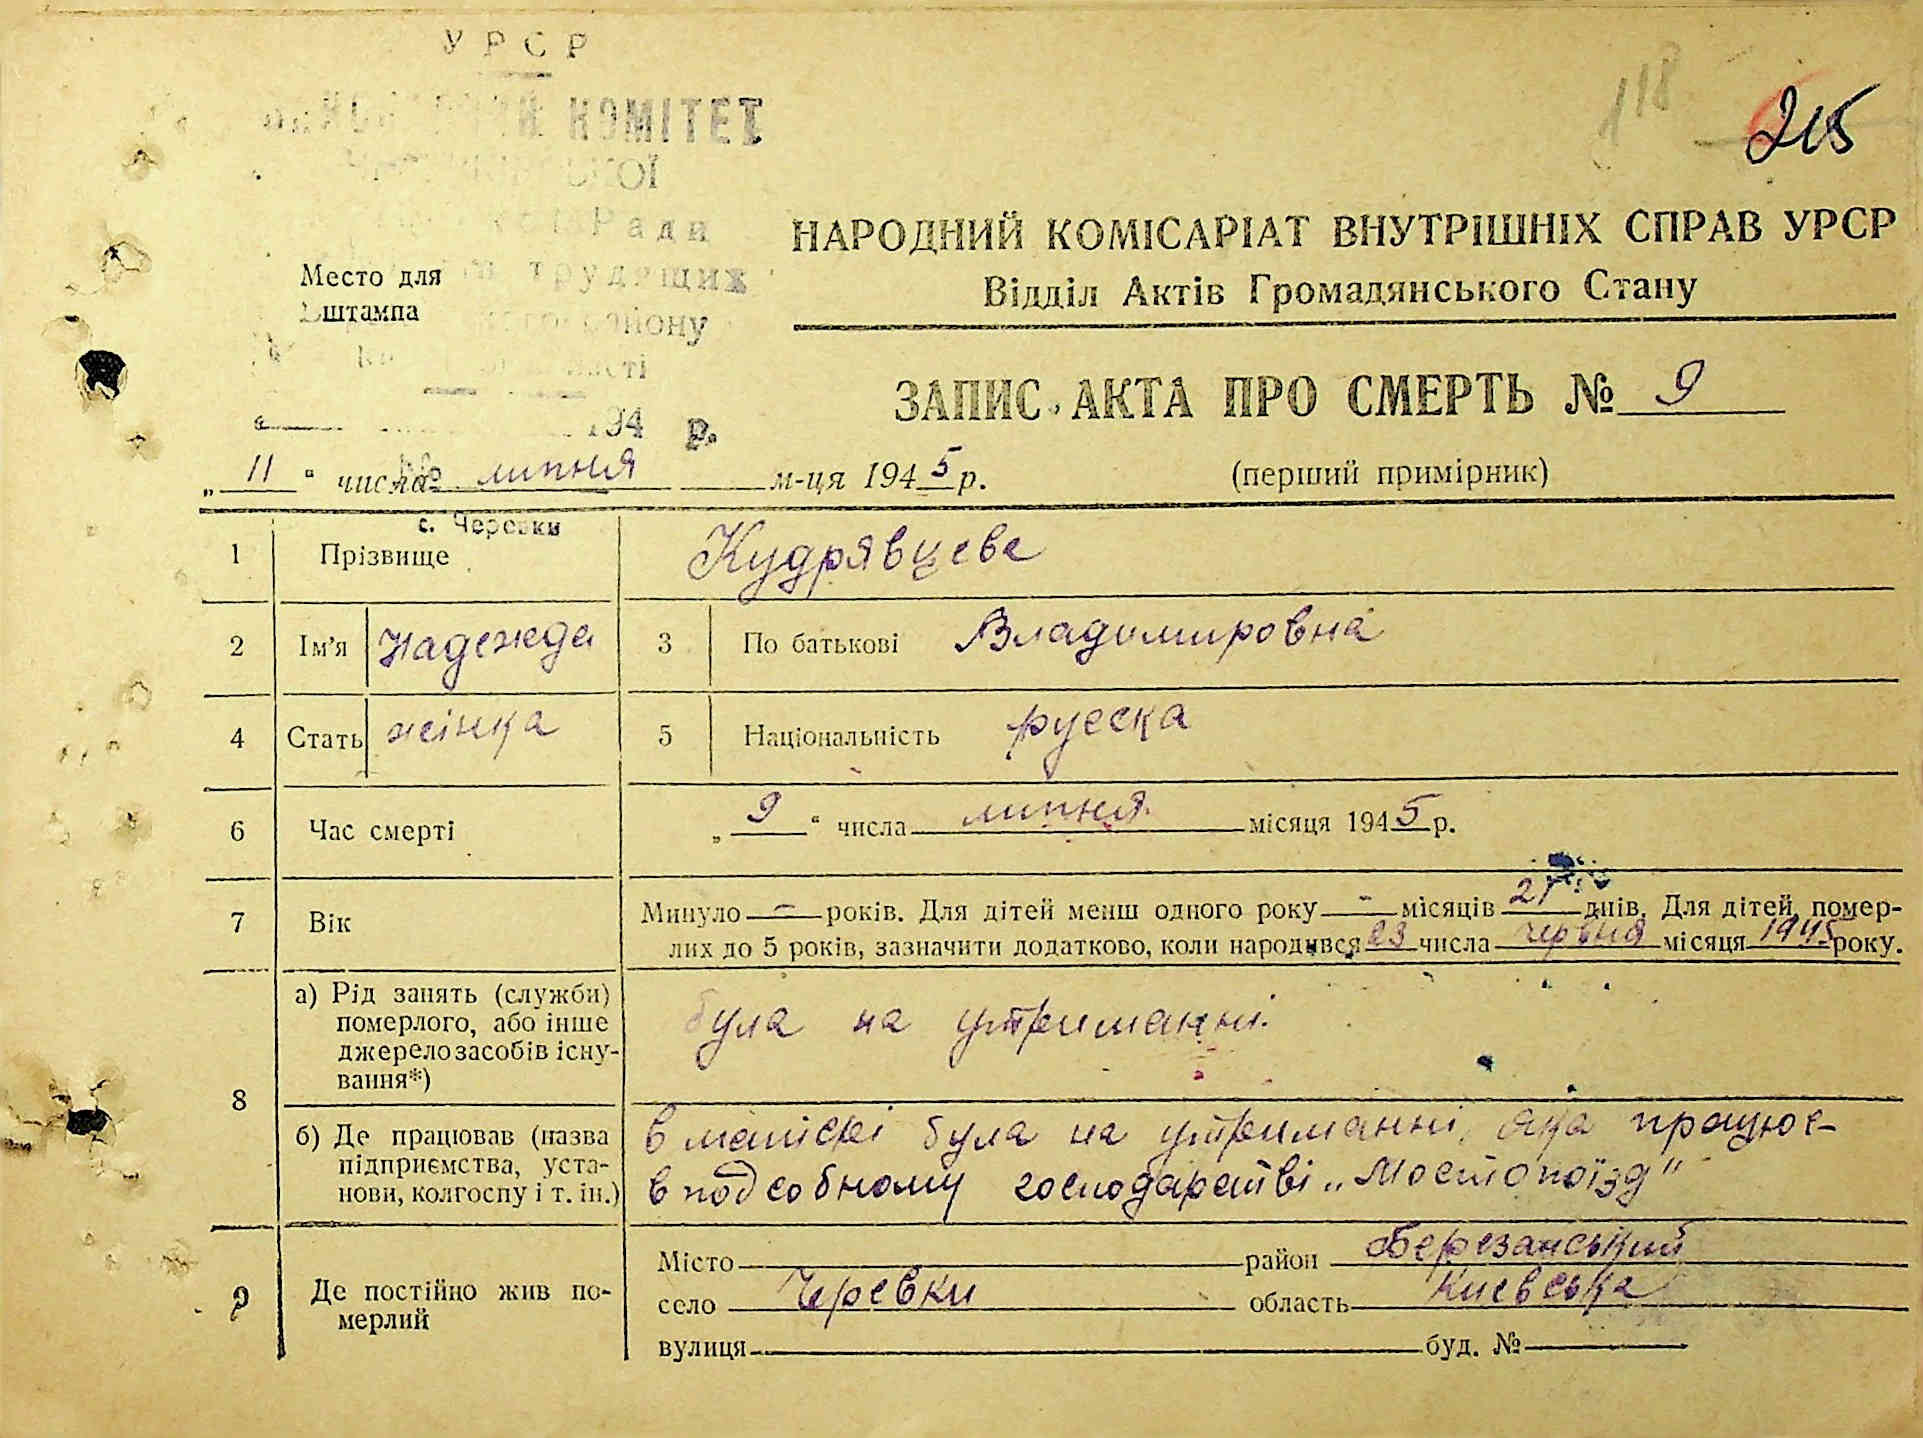 УРСР
КОМІТЕТ
Ради
трудящих
району
Место для
штампа
194 р.
с. Черевки
118
215
НАРОДНИЙ КОМІСАРІАТ ВНУТРІШНІХ СПРАВ УРСР
Відділ Актів Громадянського Стану
ЗАПИС АКТА ПРО СМЕРТЬ № 9
„ 11 “ числа липня м-ця 1945 р.
(перший примірник)
1 Прізвище Кудрявцева
2 Ім’я Надежда 3 По батькові Владимировна
4 Стать жінка 5 Національність русска
6 Час смерті „ 9 “ числа липня місяця 1945 р.
7 Вік Минуло - років. Для дітей менш одного року - місяців днів. Для дітей, помер-
лих до 5 років, зазначити додатково, коли народився 23 числа червня місяця 1945 року.
8 а) Рід занять (служби)
померлого, або інше
джерело засобів існу-
вання*)
була на утриманні.
б) Де працював (назва
підприємства, уста-
нови, колгоспу і т. ін.)
в матіскі була на утриманні, яка працює
в подсобному господарстві „Мостопоїзд“
9 Де постійно жив по-
мерлий
Місто район Березанський
село Черевки область Киевська
вулиця буд. №